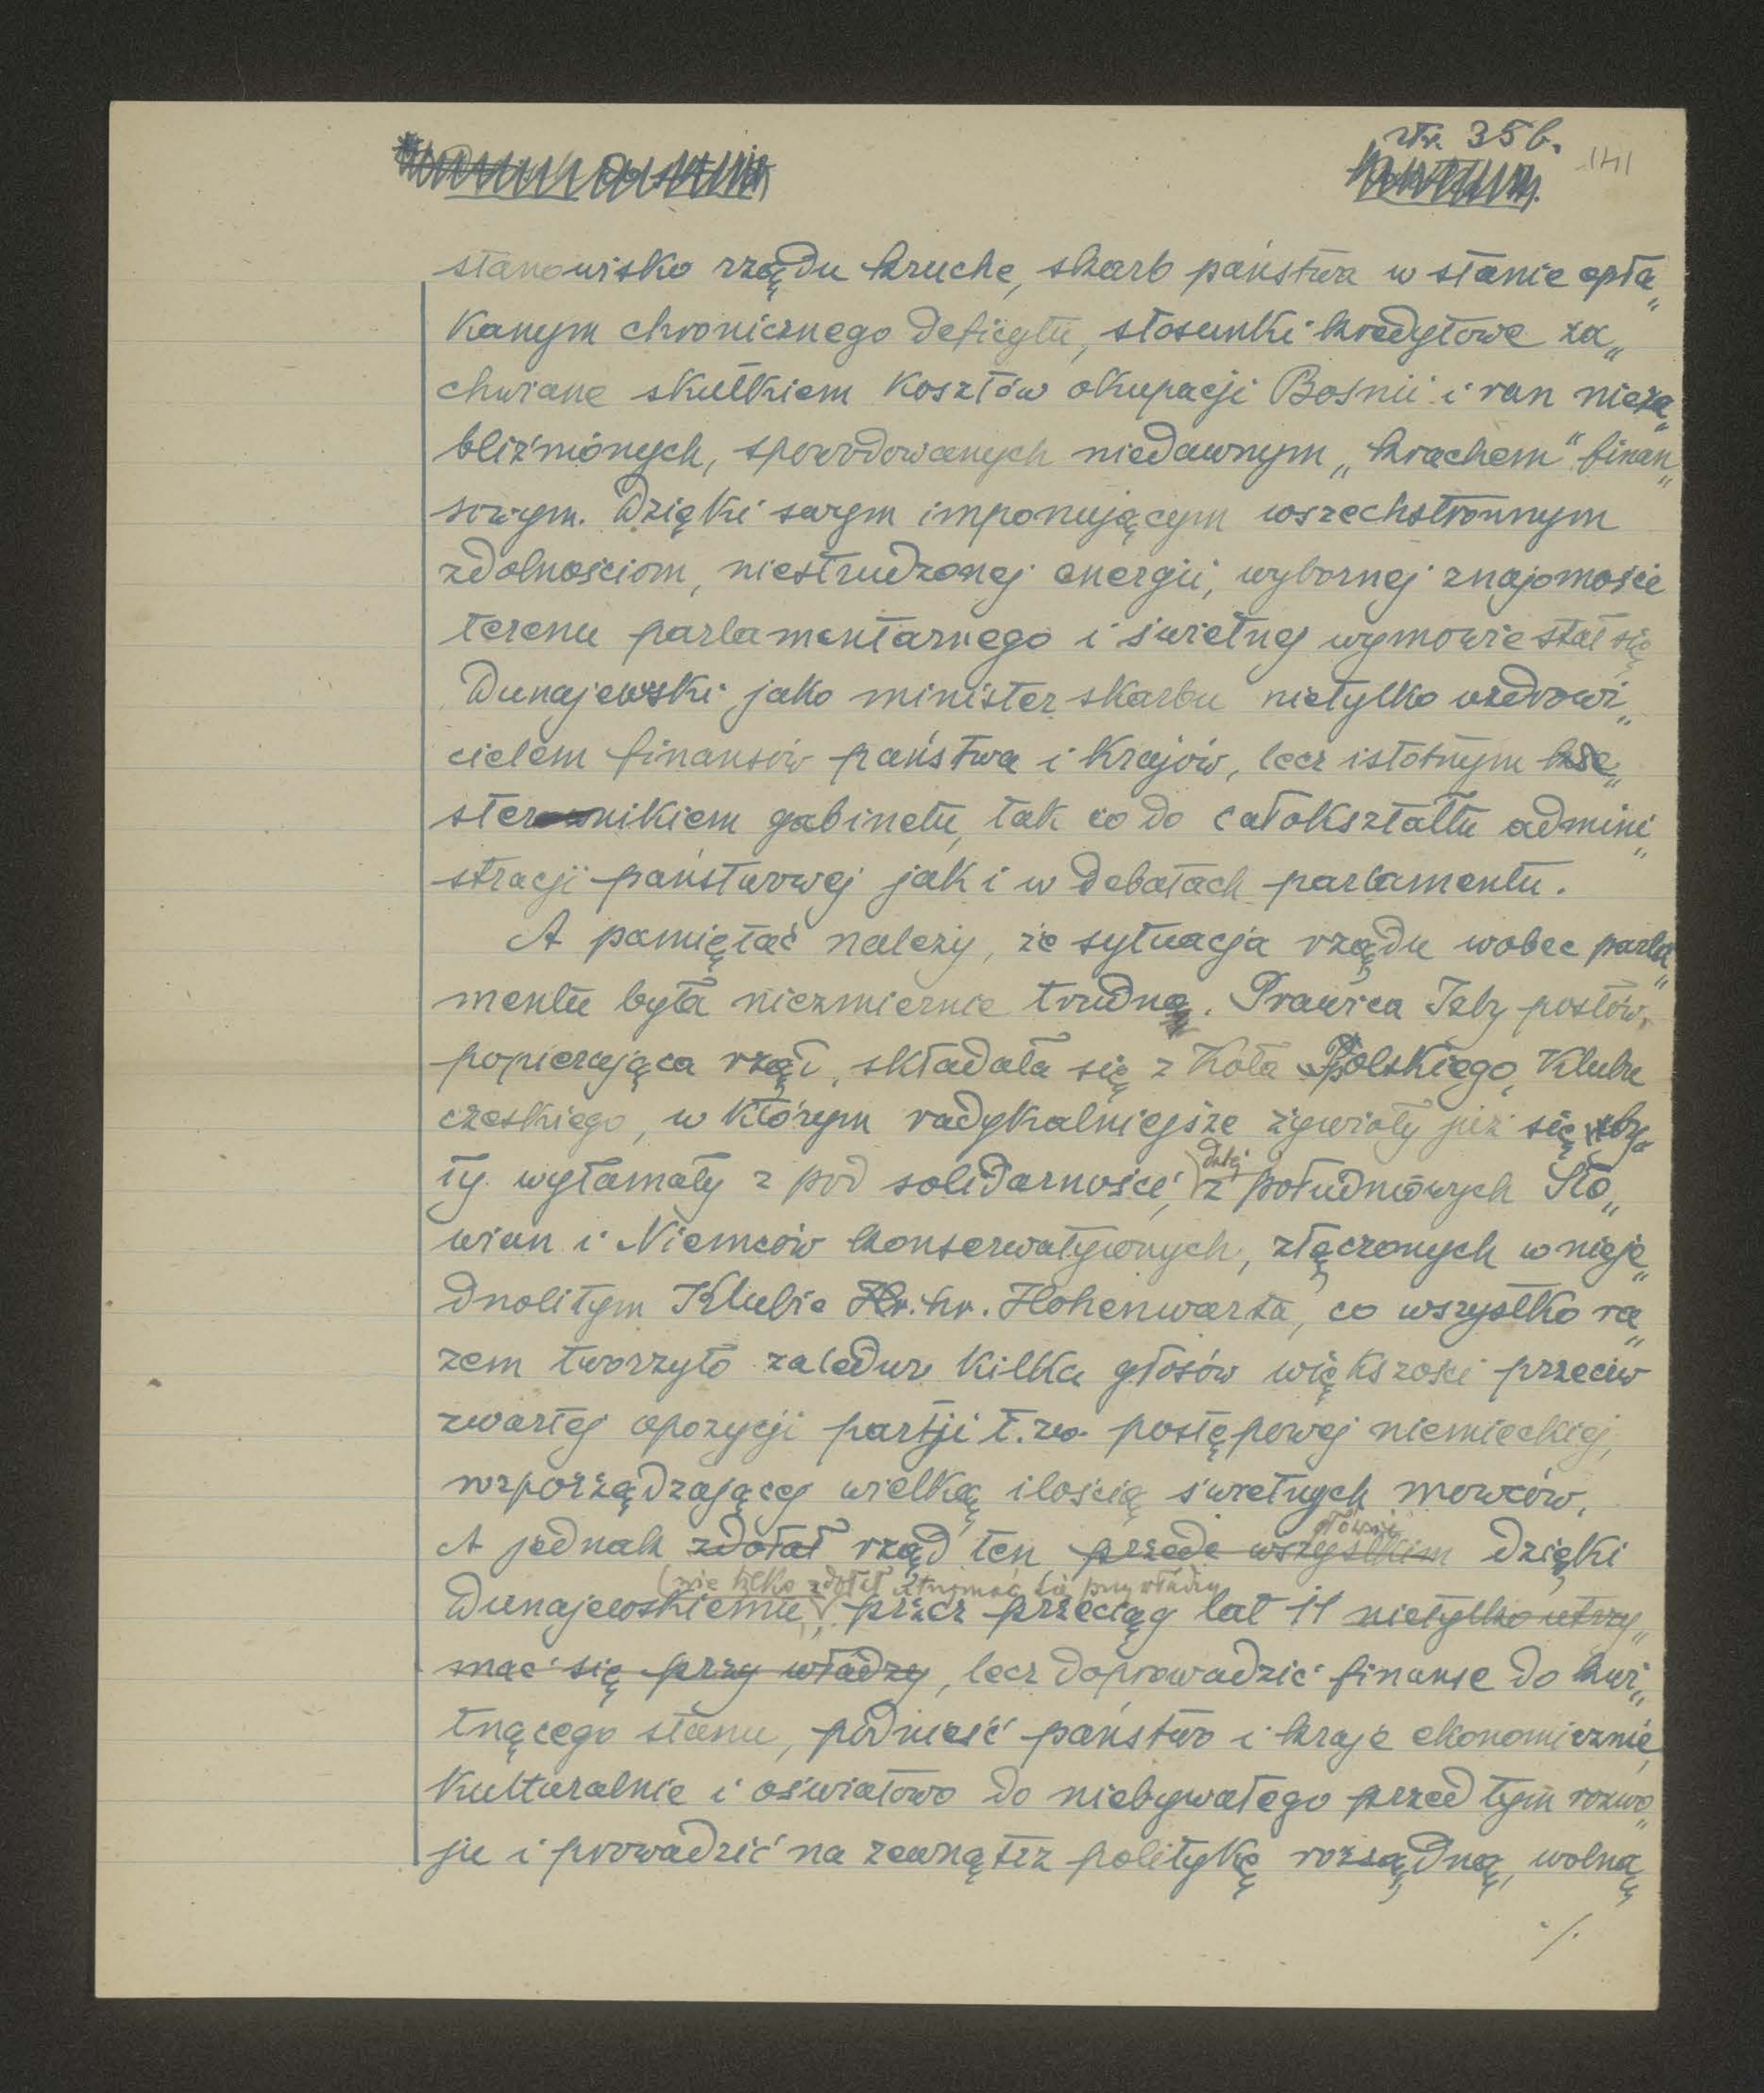 str. 35 b.
141
stanowisko rządu kruche, skarb państwa w stanie opła„
kanym chronicznego deficytu, stosunki kredytowe za„
chwiane skutkiem kosztów okupacji Bośnii i ran nieza„
bliźnionych, spowodowanych niedawnym „krachem" finan„
sowym. Dzięki swym imponującym wszechstronnym
zdolnościom, niestrudzonej energii, wybornej znajomości
terenu parlamentarnego i świetnej wymowie stał się
Dunajewski jako minister skarbu nietylko uzdrowi„
cielem finansów państwa i krajów, lecz istotnym
sternikiem gabinetu, tak co do całokształtu admini„
stracji państwowej jak i w debatach parlamentu.
A pamiętać należy, że sytuacja rządu wobec parla„
mentu była niezmiernie trudna. Prawica Izby posłów,
popierająca rząd, składała się z Koła Polskiego, Klubu
czeskiego, w którym radykalniejsze żywioły już się
ty wyłamały z pod solidarności, dalej
z południowych Sło„
wian i Niemców konserwatywnych, złączonych w nieje„
dnolitym Klubie Hr. hr. Hohenwarta, co wszystko ra„
zem tworzyło zaledwo kilka głosów większości przeciw
zwartej opozycji partji t. zw. postępowej niemieckiej,
rozporządzającej wielką ilością świetnych mowców.
głównie
A jednak zdołał rząd ten przede wszystkim dzięki
(nie tylko zdołał utrzymać się przy władzy
Dunajewskiemu, przez przeciąg lat 11 nietylko utrzy„
mać się przy władzy, lecz doprowadzić finanse do kwi„
tnącego stanu, podnieść państwo i kraje ekonomicznie,
kulturalnie i oświatowo do niebywałego przed tym rozwo„
ju i prowadzić na zewnątrz politykę rozsądną, wolną
./.